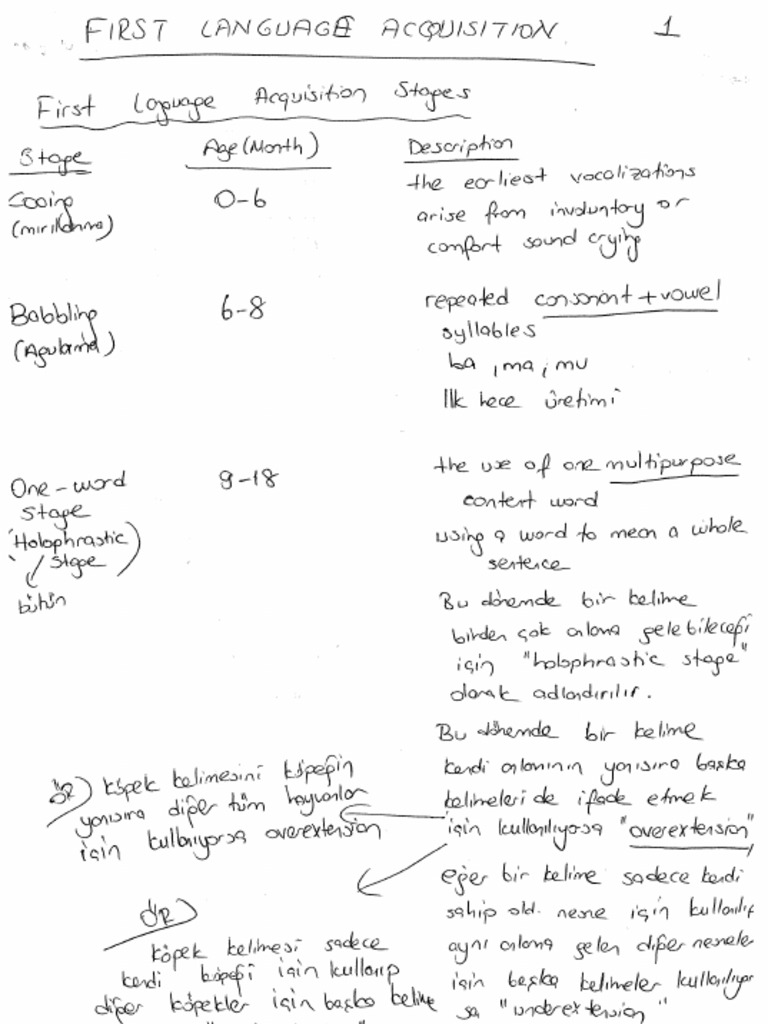 FIRST LANGUAGE ACQUISITION 1
First Language Acquisition Stages
Stage Age (Month) Description
Cooing 0-6 the earliest vocalizations
(mırıldanma) arise from involuntary or
comfort sound crying
Babbling 6-8 repeated consonant + vowel
(Agulama) syllables
ba, ma, mu
İlk hece üretimi
One-word 9-18 the use of one multipurpose
stage content word
(Holophrastic using a word to mean a whole
stage) sentence
bütün
Bu dönemde bir kelime
birden çok anlama gelebileceği
için "holophrastic stage"
olarak adlandırılır.
Bu dönemde bir kelime
kendi anlamının yanısıra başka
kelimeleri de ifade etmek
için kullanılıyorsa "overextension"
ÖR) köpek kelimesini köpeğin
yanısıra diğer tüm hayvanlar
için kullanıyorsa overextension
eğer bir kelime sadece kendi
sahip old. nesne için kullanılıp
aynı anlama gelen diğer nesneler
için başka kelimeler kullanılıyor
sa "underextension"
ÖR)
köpek kelimesi sadece
kendi köpeği için kullanıp
diğer köpekler için başka kelime